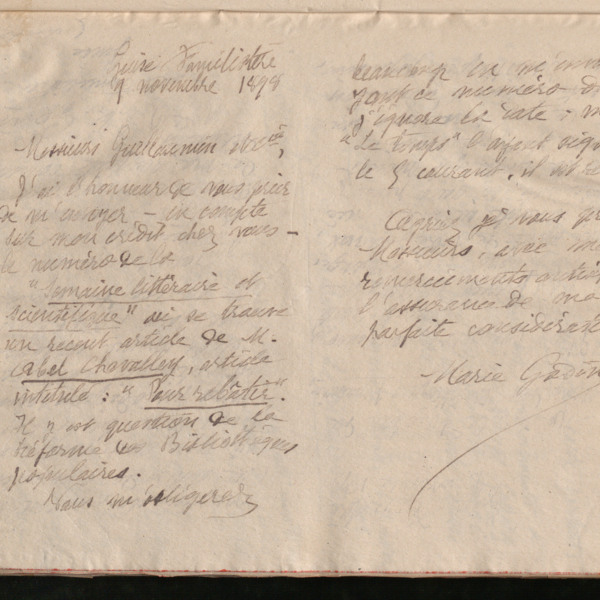 Guise Familistère
9 novembre 1898
Messieurs Guillaumin et Cie,
J'ai l'honneur de vous prier
de m'envoyer – en compte
sur mon crédit chez vous –
le numéro de la
"Semaine littéraire et
scientifique" où se trouve
un récent article de M.
Abel Chevalley, article
intitulé : "Pour rebâtir".
Il y est question de la
réforme des Bibliothèques
populaires.
Vous m'obligerez
beaucoup en m'envo
yant ce numéro
j'ignore la date ;
"Le Temps" l'ayant sign
le 5 courant, il
Agréez je vous pr
Messieurs, avec me
remerciements
l'assurance de ma
parfaite considérat
Marie Godin